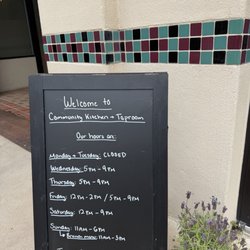 Welcome to
Community Kitchen + Taproom
Our hours are:
Monday + Tuesday: CLOSED
Wednesday: 5PM - 9PM
Thursday: 5PM - 9PM
Friday: 12PM - 2PM / 5PM - 9PM
Saturday: 12PM - 9PM
Sunday: 11AM - 6PM
Brunch menu: 11AM - 3PM